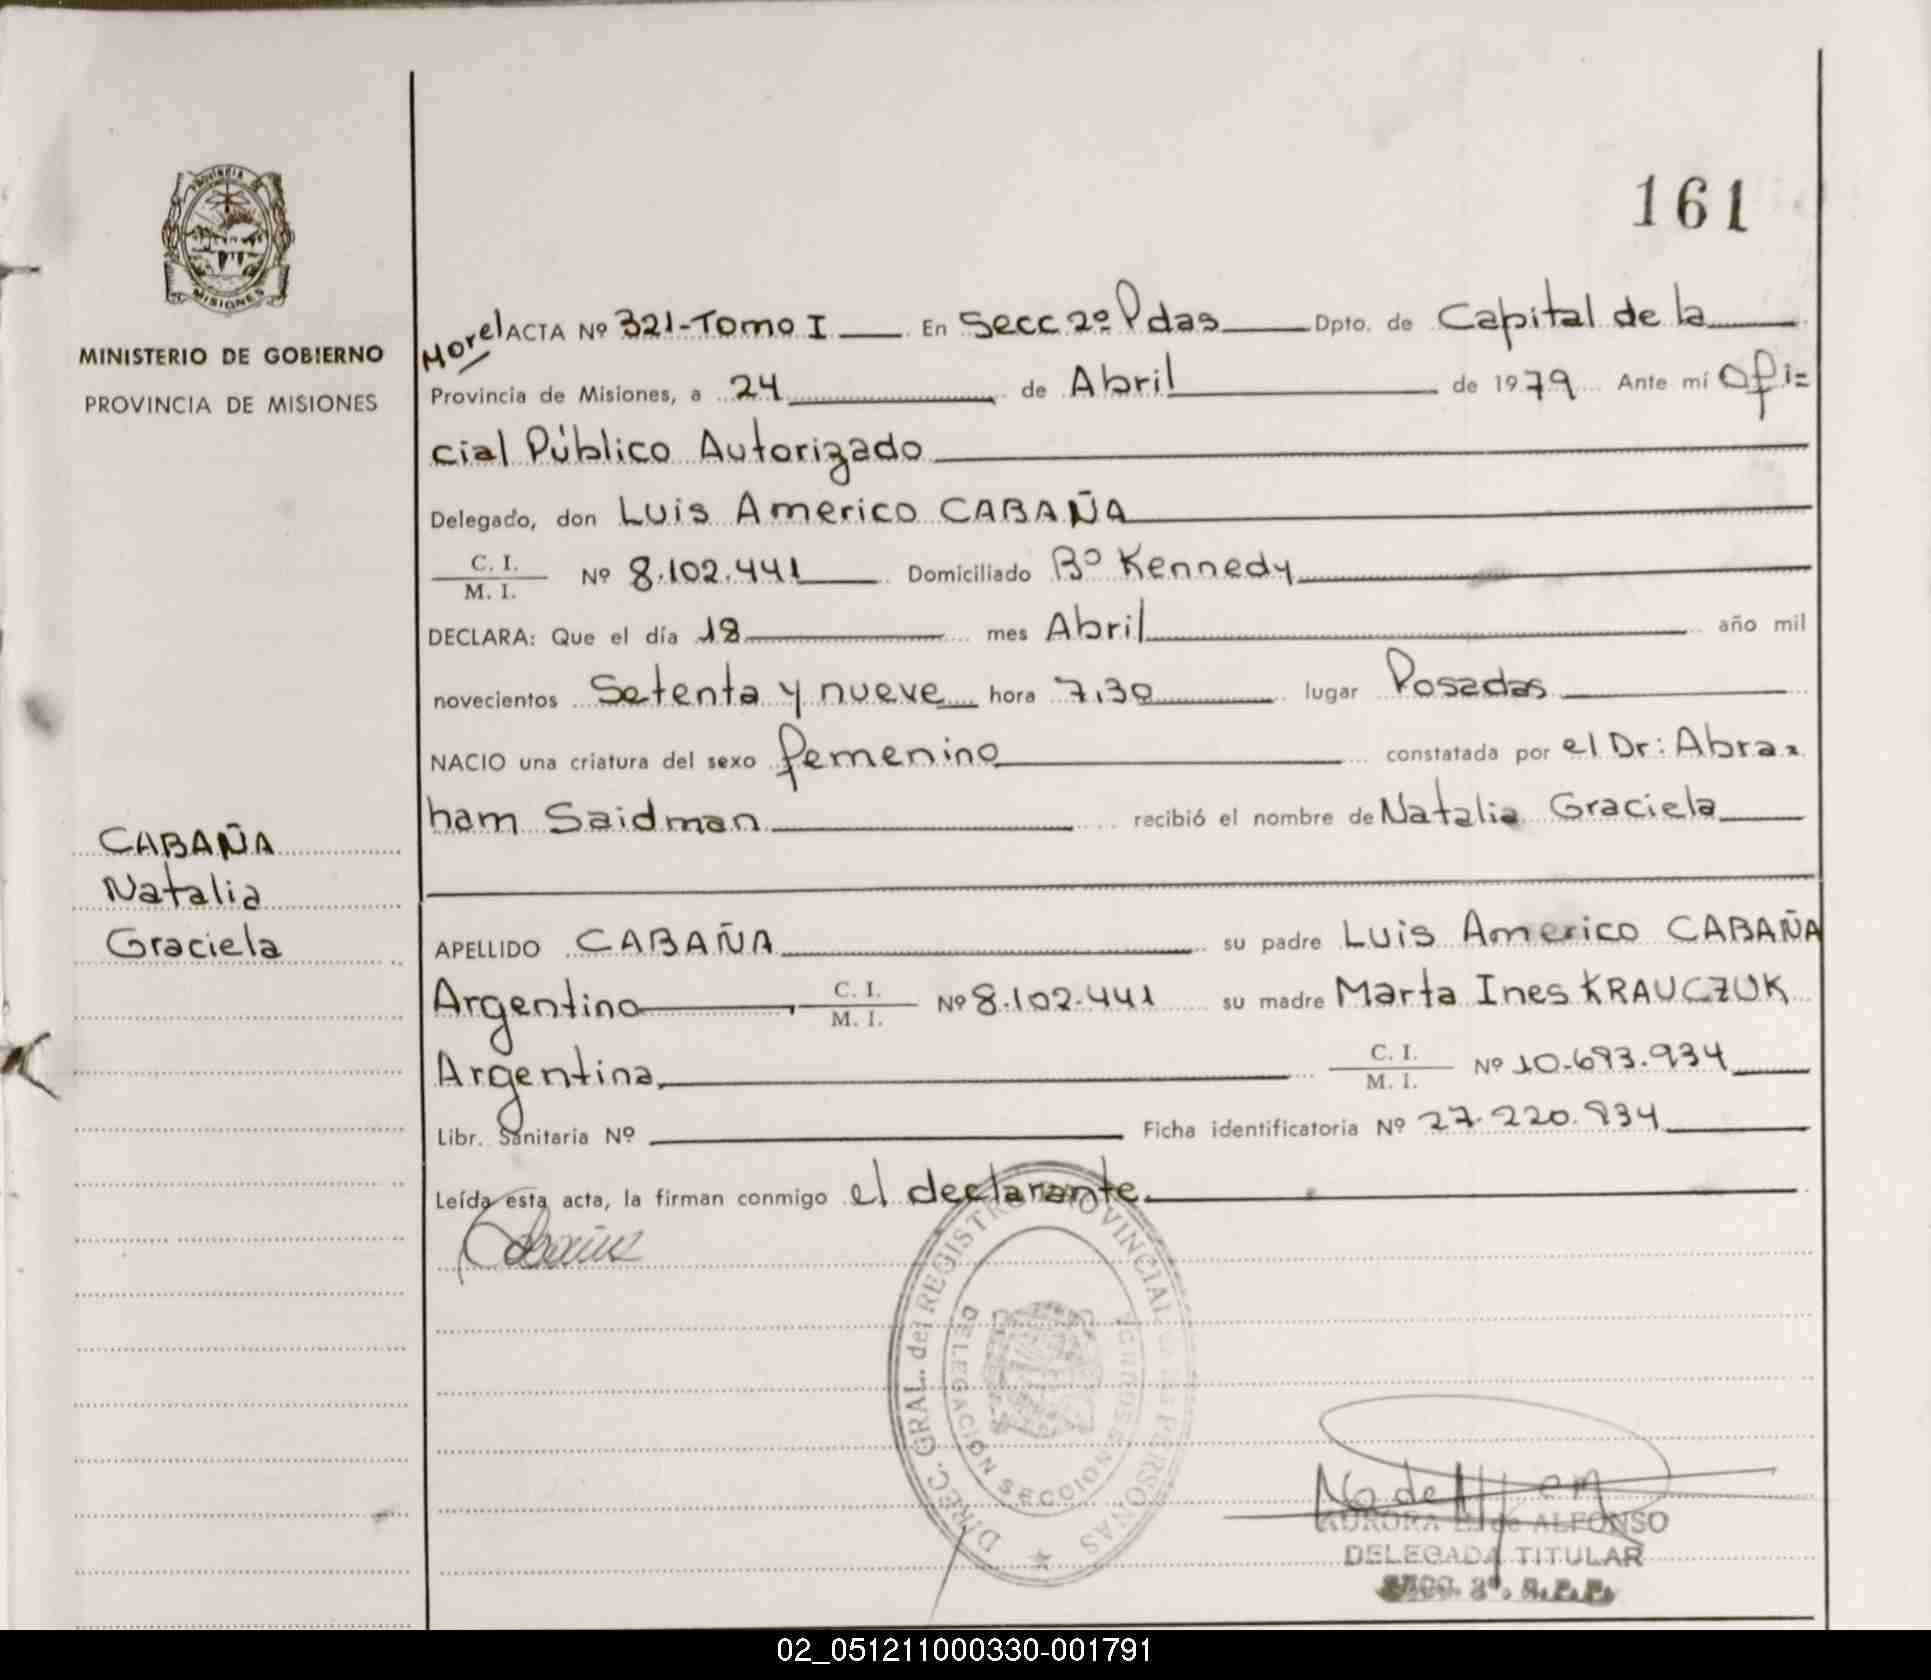 161
PROVINCIA DE
MISIONES
MINISTERIO DE GOBIERNO
PROVINCIA DE MISIONES
CABAÑA
Natalia
Graciela
Morel ACTA Nº 321-Tomo I En Secc 2º Pdas Dpto. de Capital de la
Provincia de Misiones, a 24 de Abril de 1979 Ante mí Ofi=
cial Público Autorizado
Delegado, don Luis Americo CABAÑA
C. I.
M. I. Nº 8.102.441 Domiciliado Bº Kennedy
DECLARA: Que el día 18 mes Abril año mil
novecientos Setenta y nueve hora 7.30 lugar Posadas
NACIO una criatura del sexo femenino constatada por el Dr: Abra=
ham Saidman recibió el nombre de Natalia Graciela
APELLIDO CABAÑA su padre Luis Americo CABAÑA
Argentino, C. I.
M. I. Nº 8.102.441 su madre Marta Ines KRAUCZUK
Argentina, C. I.
M. I. Nº 10.693.934
Libr. Sanitaria Nº Ficha identificatoria Nº 27.220.934
Leída esta acta, la firman conmigo el declarante
DIREC. GRAL. del REGISTRO PROVINCIAL DE LAS PERSONAS
DELEGACION SECCION
AURORA de ALFONSO
DELEGADA TITULAR
02_051211000330-001791